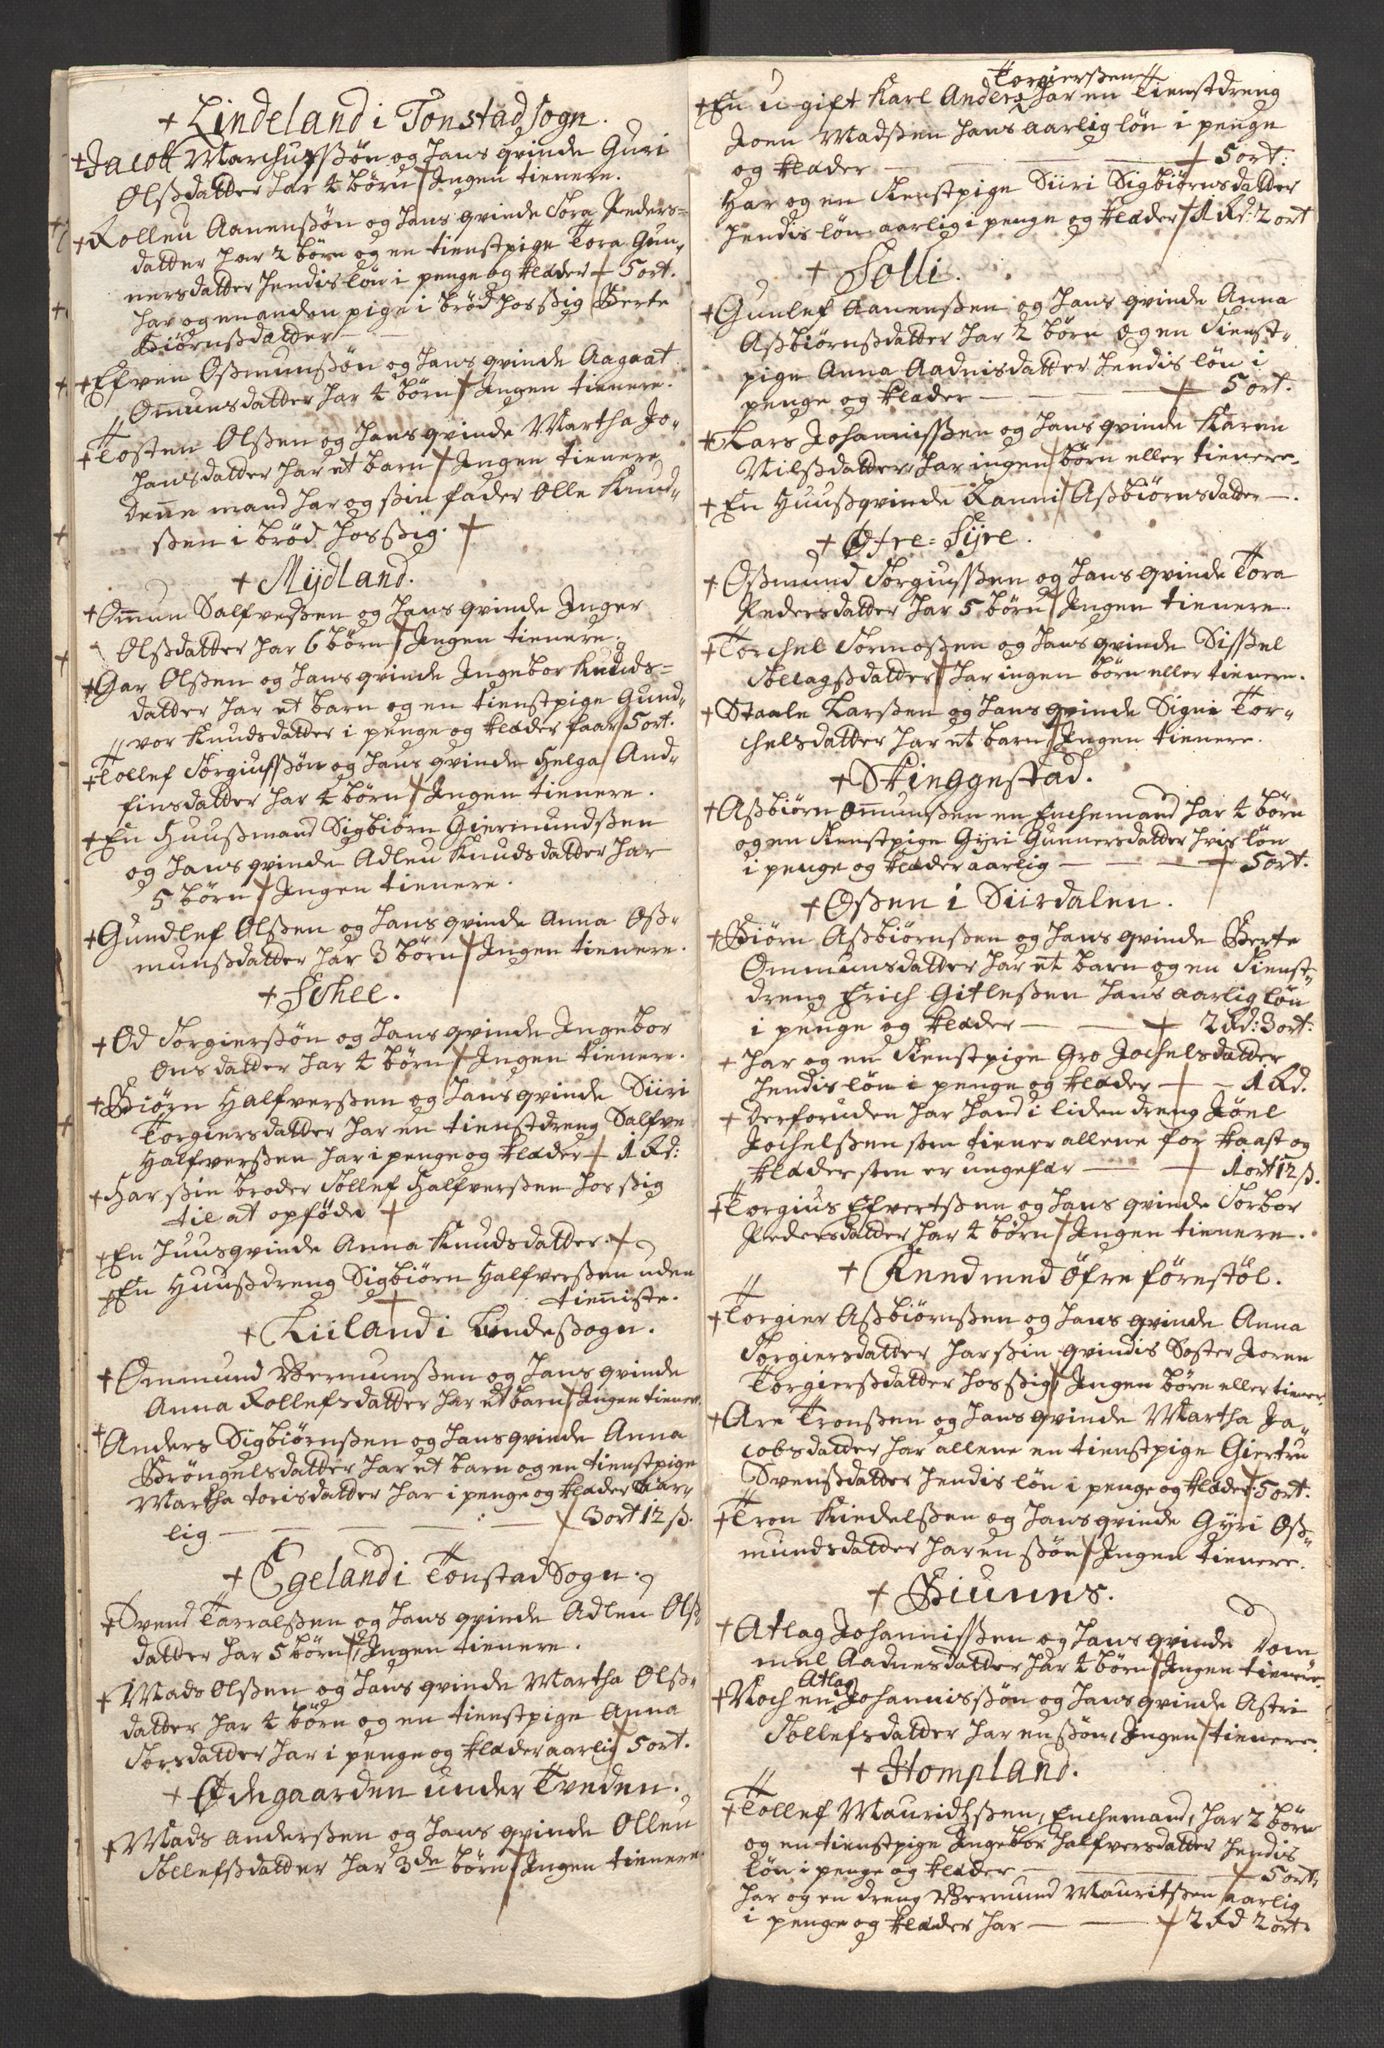 + Lindeland i Tonstad sogn.
+ Jacob Marchusßøn og hans qvinde Guri
Olsdatter har 4 børn / Ingen tienere.
+ Rolleu Aanenßøn og hans qvinde Tora Peders=
datter har 2 børn og en tienstpige Tora Gun=
nersdatter hendis løn i penge og klæder + 5 ort.
har og en anden pige i brød hos ßig Berte
Biörnßdatter
+ Efven Oßmunßøn og hans qvinde Aagaat
Omunsdatter har 4 børn / Ingen tienere.
+ Tosten Olßen og hans qvinde Martha Jo=
hansdatter har et barn / Ingen tienere
denne mand har og ßin fader Olle Knud=
ßen i brød hos ßig. +
+ Mydland.
+ Omun Salfveßen og hans qvinde Inger
Olßdatter har 6 børn / Ingen tienere.
+ Gar Olßen og hans qvinde Ingebor Knuds=
datter har et barn og en tienstpige Gund=
vor Knudsdatter i penge og klæder faar / 5 ort.
+ Tollef Torgiusßøn og hans qvinde Helga And=
finsdatter har 4 børn / Ingen tienere.
+ En Huußmand Sigbiørn Giermundßen
og hans qvinde Adleu Knudsdatter har
5 børn / Ingen tienere.
+ Gundlef Olßen og hans qvinde Anna Oß=
munßdatter har 3 børn / Ingen tienere.
+ Schee.
+ Od Torgierßøn og hans qvinde Ingebor
Onsdatter har 4 børn / Ingen tienere.
+ Biørn Halfverßen og hans qvinde Siiri
Torgiersdatter har en tienstdreng Salfve
Halfverßen har i penge og klæder + 1 Rd:
+ Har ßin broder Tollef Halfverßen hos ßig
til at opföde +
+ En huusqvinde Anna Knudsdatter. +
+ En Huußdreng Sigbiørn Halfverßen uden
tienniste.
+ Liiland i Lundeßogn.
+ Ommund Vermunßen og hans qvinde
Anna Rollefsdatter har et barn / Ingen tiener.
+ Anders Sigbiørnßen og hans qvinde Anna
Bröngelsdatter har et barn og en tienstpige
Martha torisdatter har i penge og klæder aar=
lig — — — 3 ort 12 ß.
+ Egeland i Tonstad Sogn.
+ Svend Tarralßen og hans qvinde Adleu Olß
datter har 5 børn / Ingen tienere.
+ Mads Olßen og hans qvinde Martha Olß=
datter har 4 børn og en tienstpige Anna
Torsdatter har i penge og klæder aarlig 5 ort.
+ Ødegaarden under Tveden.
+ Mads Anderßen og hans qvinde Olleu
Tollefßdatter har 3de børn / Ingen tienere.
Torgierßen
+ En u-gift Karl Anders har en Tienstdreng
Joen Madßen hans aarlig løn i penge
og klæder — + 5 ort:
Har og en Tienstpige Siiri Sigbiørnsdatter
hendis løn aarlig i penge og klæder + 1 Rd: 2 ort
+ Solli.
+ Gunlef Aanenßen og hans qvinde Anna
Aßbiørnßdatter har 2 børn og en Tienst=
pige Anna Aadnisdatter hendis løn i
penge og klæder — + 5 ort.
+ Lars Johannisßen og hans qvinde Karen
Nilßdatter har ingen børn eller tienere.
+ En Huußqvinde Ranni Aßbiørnsdatter —.
+ Øfre = Syre.
+ Oßmund Torgiusßen og hans qvinde Tora
Pedersdatter har 5 børn / Ingen tienere.
+ Torchel Tormoßen og hans qvinde Sißel
Tollagßdatter / har ingen børn eller tienere.
+ Staale Larßen og hans qvinde Signi Tor=
chelsdatter har et barn / Ingen tienere.
+ Skinggestad.
+ Aßbiørn Omunßen en Enchemand har 4 børn
og en Tienstpige Gyri Gunnersdatter hvis løn
i penge og klæder aarlig — — 5 ort.
+ Oßen i Siirdalen.
+ Biørn Aßbiørnßen og hans qvinde Berte
Ommunsdatter har et barn og en Tienst=
dreng Erich Gitleßen hans aarlig løn
i penge og klæder — + 2 Rd: 3 ort:
+ har og en Tienstpige Gro Jochelsdatter
hendis løn i penge og klæder + — 1 Rd.
+ derforuden har hand i liden dreng Jöel
Jochelßen som tiener allene for kaast og
klæder som er ungefær — + 1 ort 12 ß.
+ Torgius Efvertßen og hans qvinde Torbor
Pedersdatter har 4 børn / Ingen tienere.
+ Qvend med öfre förestöl.
+ Torgier Aßbiørnßen og hans qvinde Anna
Torgiersdatter har ßin qvindis Söster Joren
Torgierßdatter hos ßig / Ingen børn eller tiener.
+ Are Tronßen og hans qvinde Martha Ja=
cobsdatter har allene en tienstpige Giertru
Svenßdatter hendis løn i penge og klæder: 5 ort.
+ Tron Kindelßen og hans qvinde Gyri Oß=
mundsdatter har en ßøn / Ingen tienere.
+ Biunes.
+ Atlag Johannisßen og hans qvinde Dom
mel Aadnesdatter har 4 børn / Ingen tienere.
Atlag
+ Noch en Johannisßøn og hans qvinde Astri
Tollefsdatter har en ßøn, Ingen / tienere.
+ Hompland.
+ Tollef Mauridtzßen, Enchemand, har 2 børn
og en tienstpige Ingebor Halfversdatter hendis
løn i penge og klæder — + 5 ort:
har og en dreng Vermund Mauritßen aarlig
i penge og klæder har — + 2 Rd 2 ort